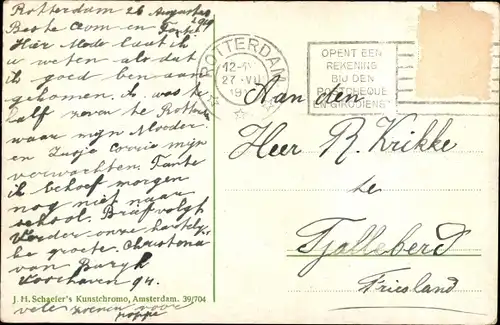 Rotterdam 26 Augustus
Beste Oom en Tante
Hier Mede laat ik
u weten als dat
ik goed ben aan
gekomen. ik was te
half zeven te Rotterd
waar mijn Moeder
en Zusje Corrie mijn
verwachten. Tante
ik behoef morgen
nog niet naar
school. Brief volgt
Verder onze hartelijk
be groete. Christona
van Buryk
Voorhaven 94.
J. H. Schaefer's Kunstchromo, Amsterdam. 39/704
vele zoenen voor
poppe
ROTTERDAM
27 VII
OPENT EEN
REKENING
BIJ DEN
POSTCHEQUE
EN GIRODIENST
Aan den
Heer R. Krikke
te
Tjalleberd
Friesland